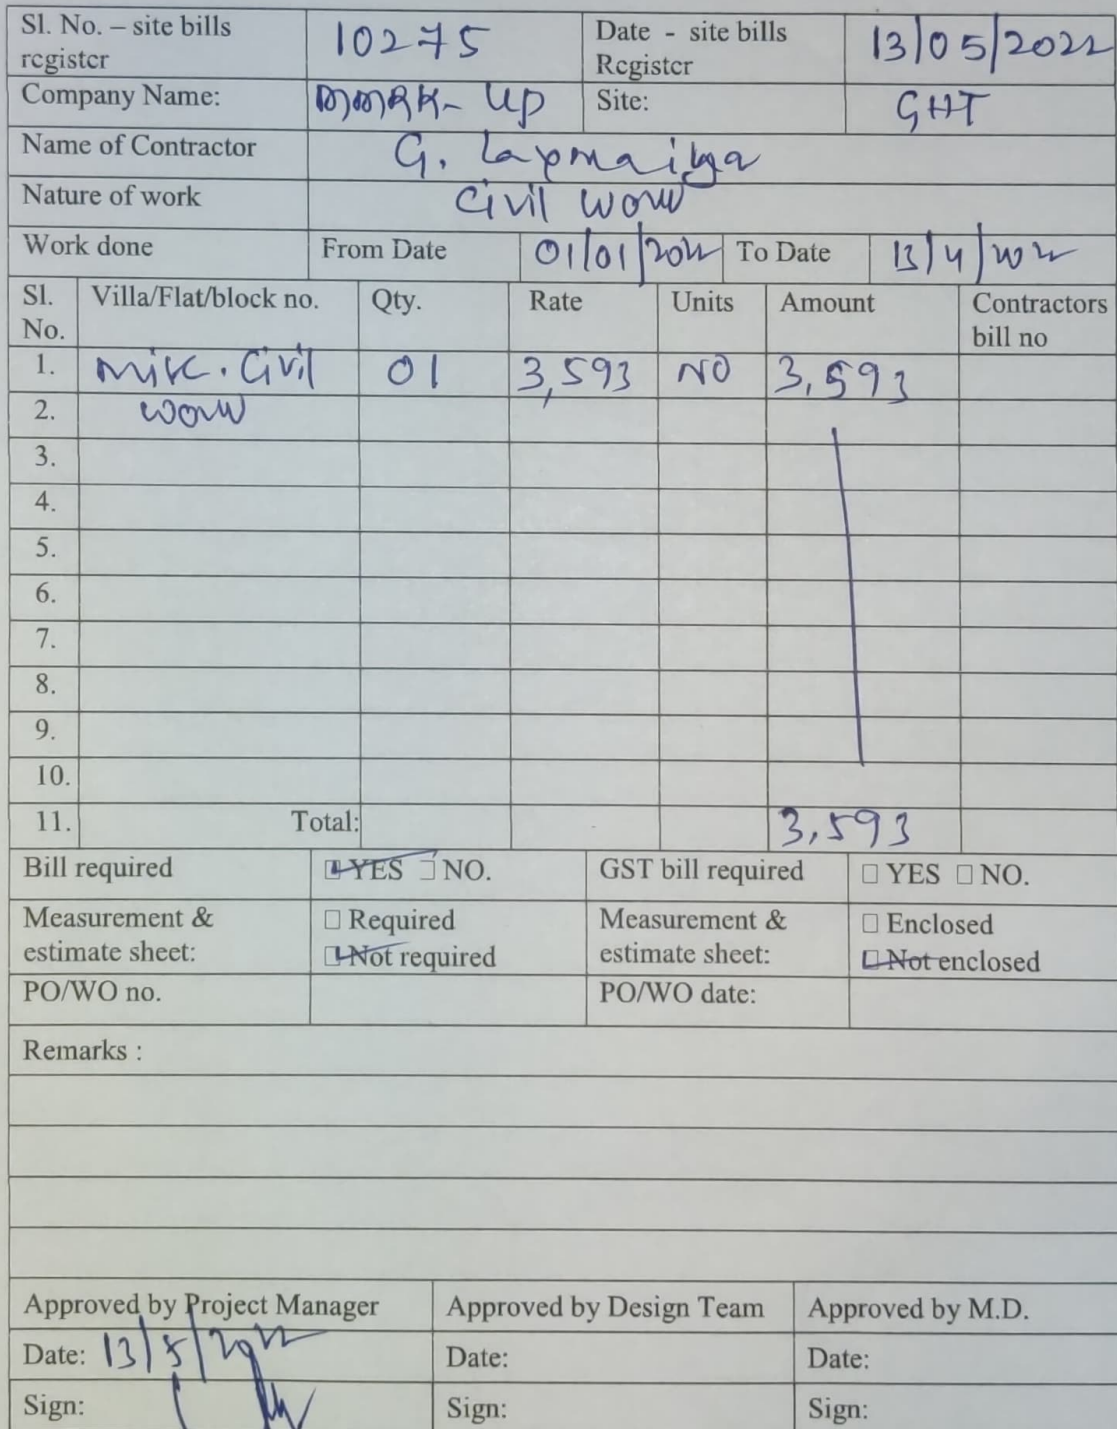 Sl. No. – site bills register 10275 Date - site bills Register 13/05/2022
Company Name: MMRK- UP Site: GHT
Name of Contractor G. Laxmaiya
Nature of work Civil work
Work done From Date 01/01/2022 To Date 13/4/2022
Sl. No. Villa/Flat/block no. Qty. Rate Units Amount Contractors bill no
1. misc. Civil 01 3,593 NO 3,593
2. work
3.
4.
5.
6.
7.
8.
9.
10.
11. Total: 3,593
Bill required YES NO. GST bill required YES NO.
Measurement & estimate sheet: Required Not required Measurement & estimate sheet: Enclosed Not enclosed
PO/WO no. PO/WO date:
Remarks :
Approved by Project Manager Approved by Design Team Approved by M.D.
Date: 13/5/2022 Date: Date:
Sign: Sign: Sign: